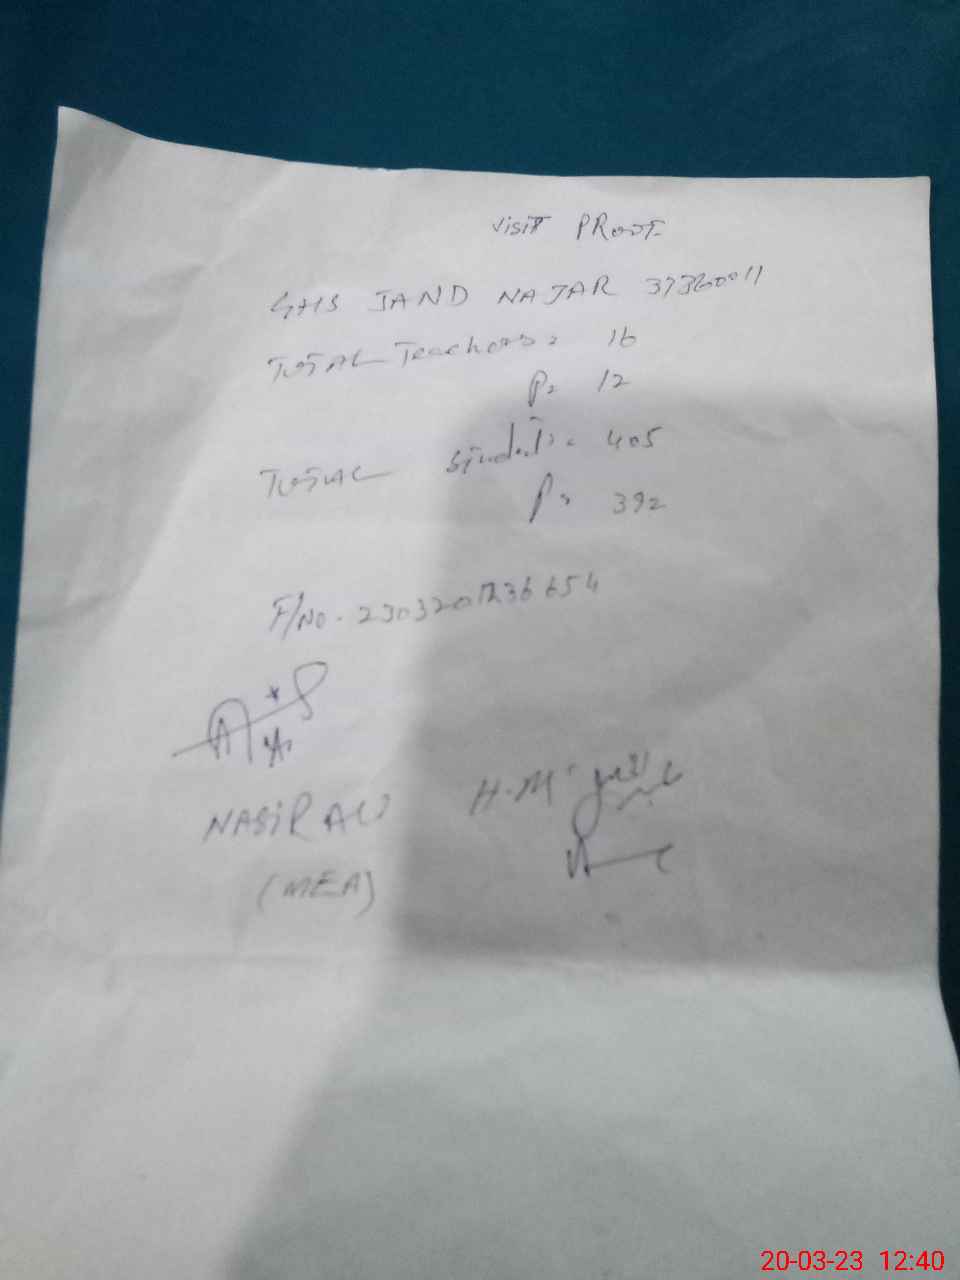 Visit PROOF
GHS JAND NAJAR 37360011
TOTAL Teachers = 16
P= 12
TOTAL Students = 405
P= 392
F/No. 2303201236654
NASIR ALI
H.M
(MEA)
20-03-23 12:40